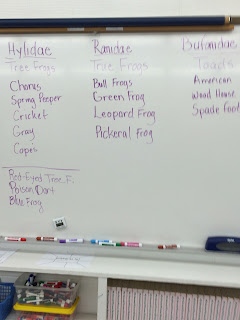 Hylidae
Tree Frogs
Chorus
Spring Peeper
Cricket
Gray
Copes
Red-Eyed Tree F.
Poison Dart
Blue Frog
Ranidae
True Frogs
Bull Frogs
Green Frog
Leopard Frog
Pickeral Frog
Bufonidae
Toads
American
Wood House
Spade Foot